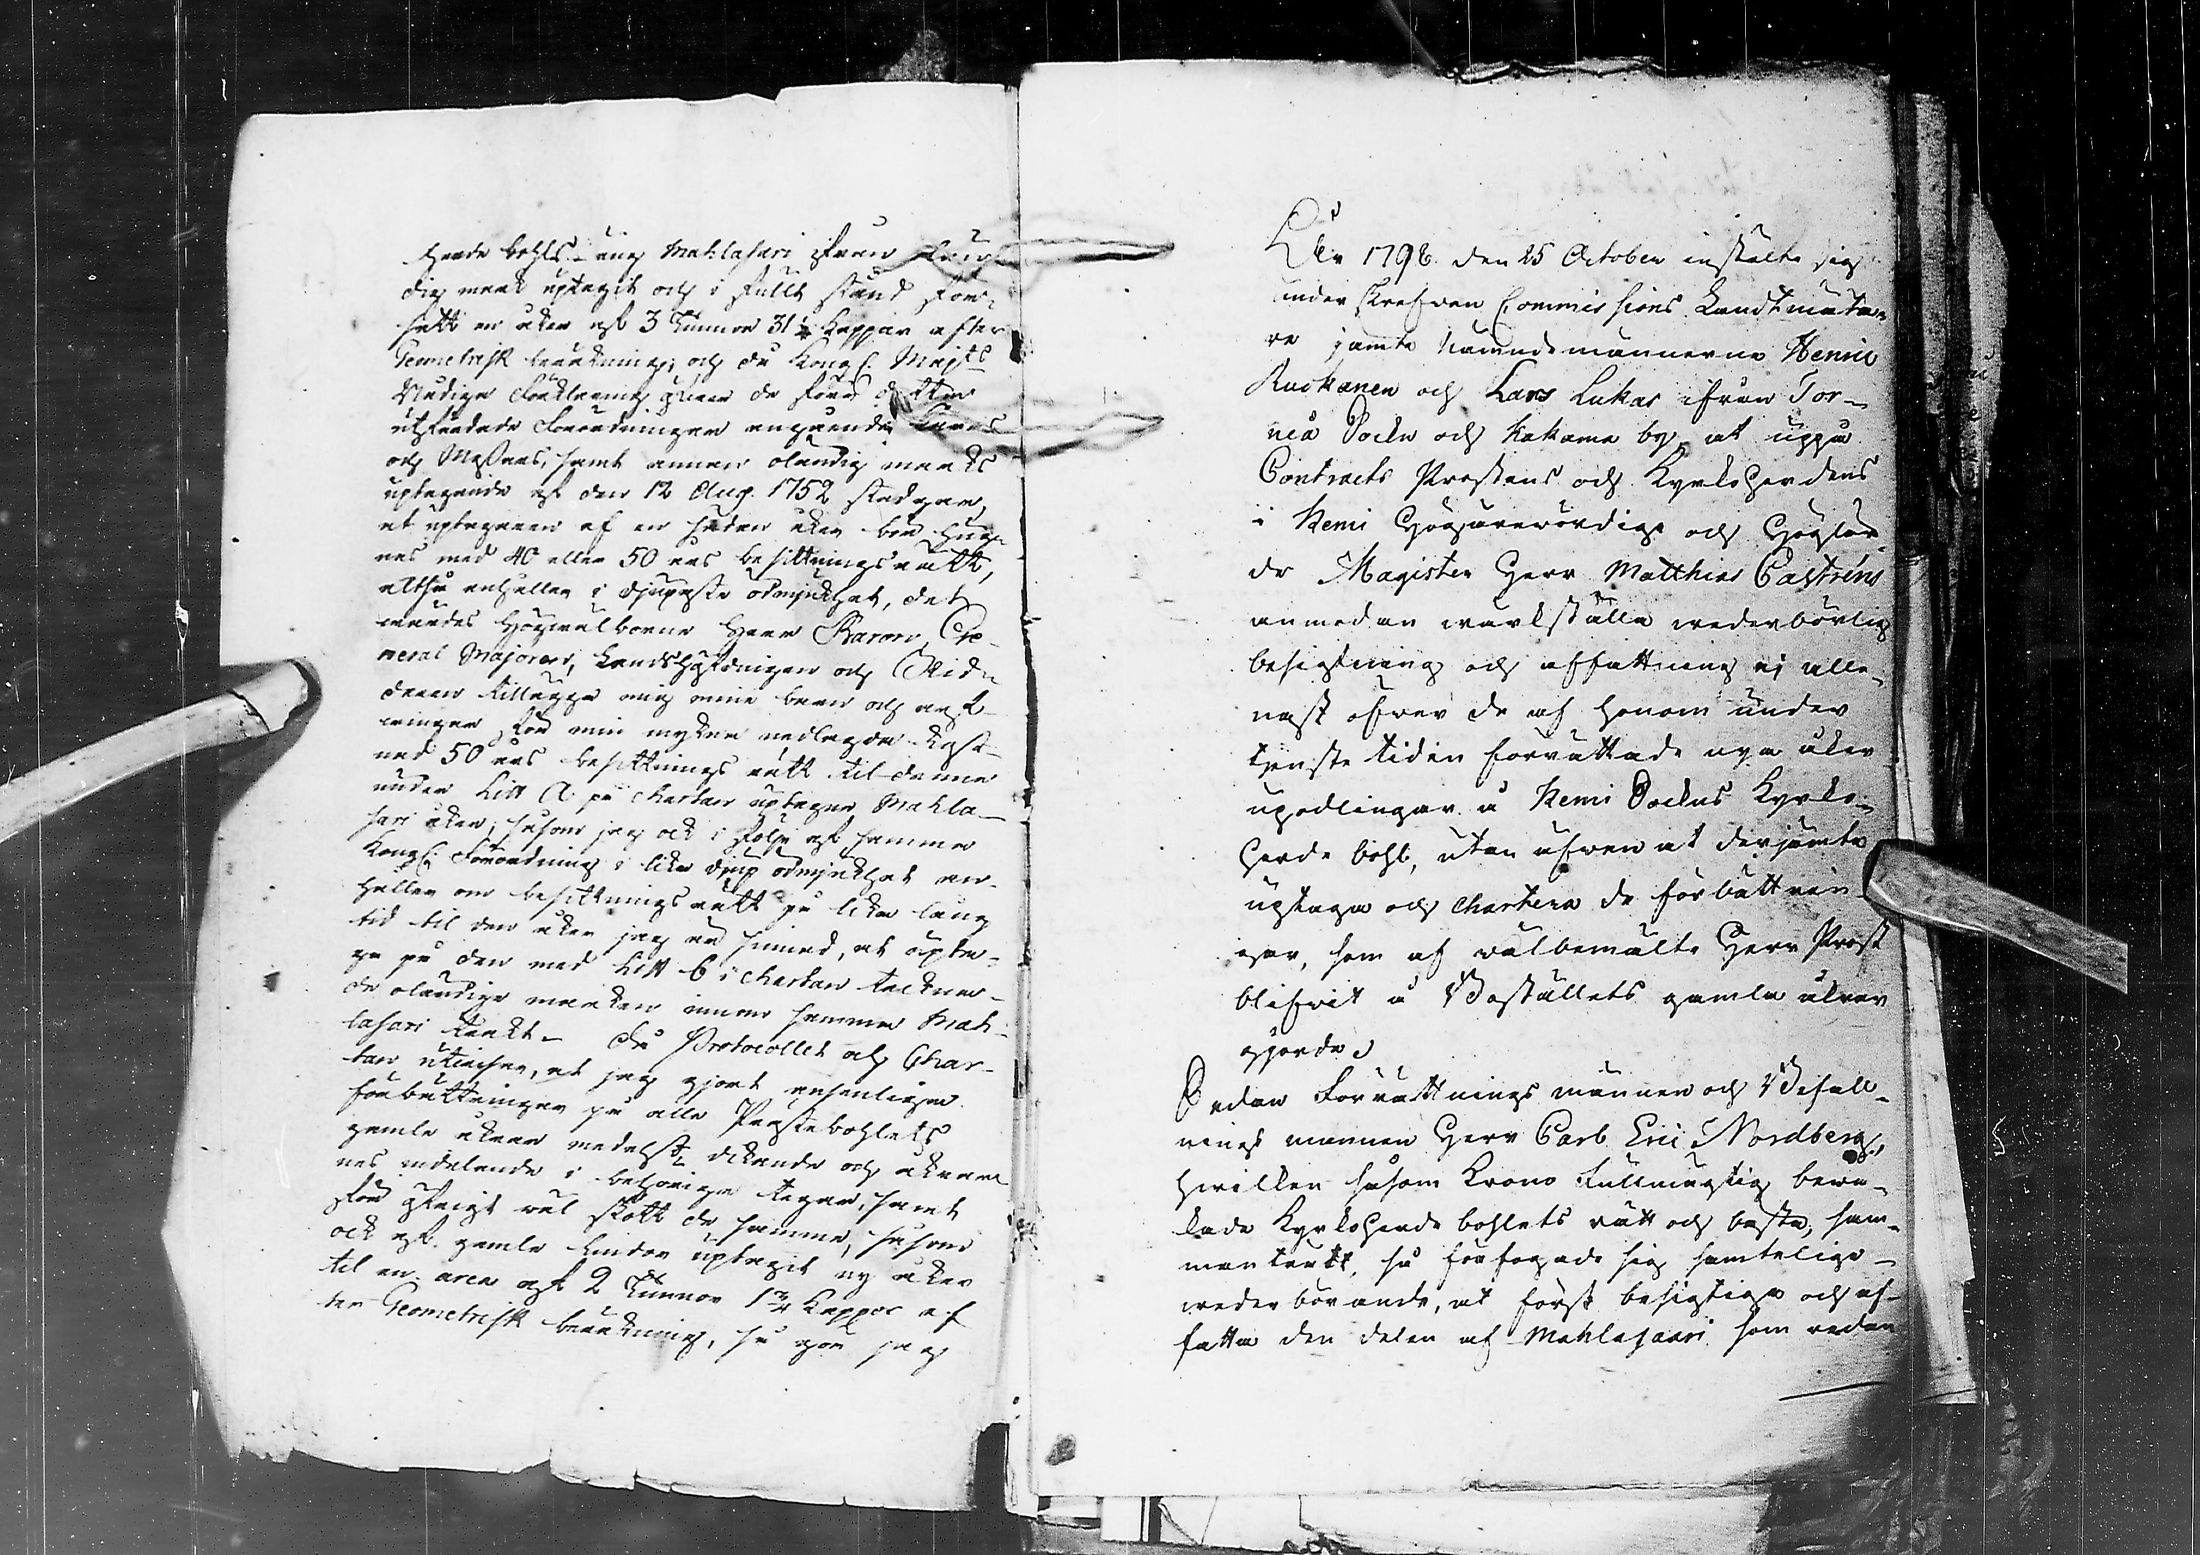 herde bohls äng Mahlasari ifrån
dig mark uptagit och i fullt stånd
satt en åker af 3 Tunnor 31 1/4 Kappar efter
Geometrisk beräkning; och då Kongl. Majts
Nådiga förklaring öfver de förr
utfärdade Förordningar angående Kärrs
och Måssars, samt annan oländig marks
uptagande af den 12 Aug. 1752 stadgar,
at uptagaren af en sådan åker bör
nas med 40 eller 50 års besittningsrätt,
altså anhåller i djupaste ödmjukhet, det
täcktes Högwälborne Herr Baron Ge-
neral Majoren, Landshöfdingen och Rid-
daren tillägga mig mine barn och arf-
wingar för min mycken nedlagde kost-
nad 50 års besittnings rätt til denne
under Litt A på Chartan uptagne Mahla-
sari åker, såsom jag ock i följe af samma
Kongl. Förordning i lika djup ödmjukhet an-
håller om besittningsrätt på lika lång
tid til den åker jag är sinnad, at upta-
ga på den med Litt B i Chartan teckna-
de oländiga marken innom samma Mah-
lasari täckt. Då Protocollet och Char-
tan utwisar, at jag gjort ansenliga
förbättringar på alla Prästebohlets
gamla åkrar medelst dikande och åkrar-
nas indelande i behöriga tegar, samt
för öfrigt wäl skött de samma, såsom
ock af gamla lindor uptagit ny åker
til en area af 2 Tunnor 1 3/4 Kappar ef
ter Geometrisk beräkning, så gör jag
År 1798 den 25 October instälte sig
underskrefwen Commissions Landtmäta-
re jämte Nämndemännerne Henric
Ruokanen och Lars Lukas ifrån Tor-
neå Sockn och Kakama by, at uppå
Contracts Prostens och Kyrkoherdens
i Kemi Högärewördige och Höglär-
de Magister Herr Matthias Castréns
anmodan wärkställa wederbörlig
besigtning och affattning ej alle-
nast öfwer de af honom under
tjenste tiden förrättade nya åker
upodlingar å Kemi Sockns Kyrko-
herde bohl, utan äfwen at derjämte
uptaga och chartera de förbättrin-
gar, som af wälbemälte Herr Prost
blifwit å Boställets gamla åkrar
gjorde.
Sedan Förrättnings männen och Befall-
nings mannen Herr Carl Eric Nordberg,
hwilken såsom Krono Fullmägtig bewa-
kade Kyrkoherde bohlets rätt och bästa, sam-
manträdt, så förfogade sig samtelige
wederbörande, at först besigtiga och af-
fatta den delen af Mahlasaari som redan